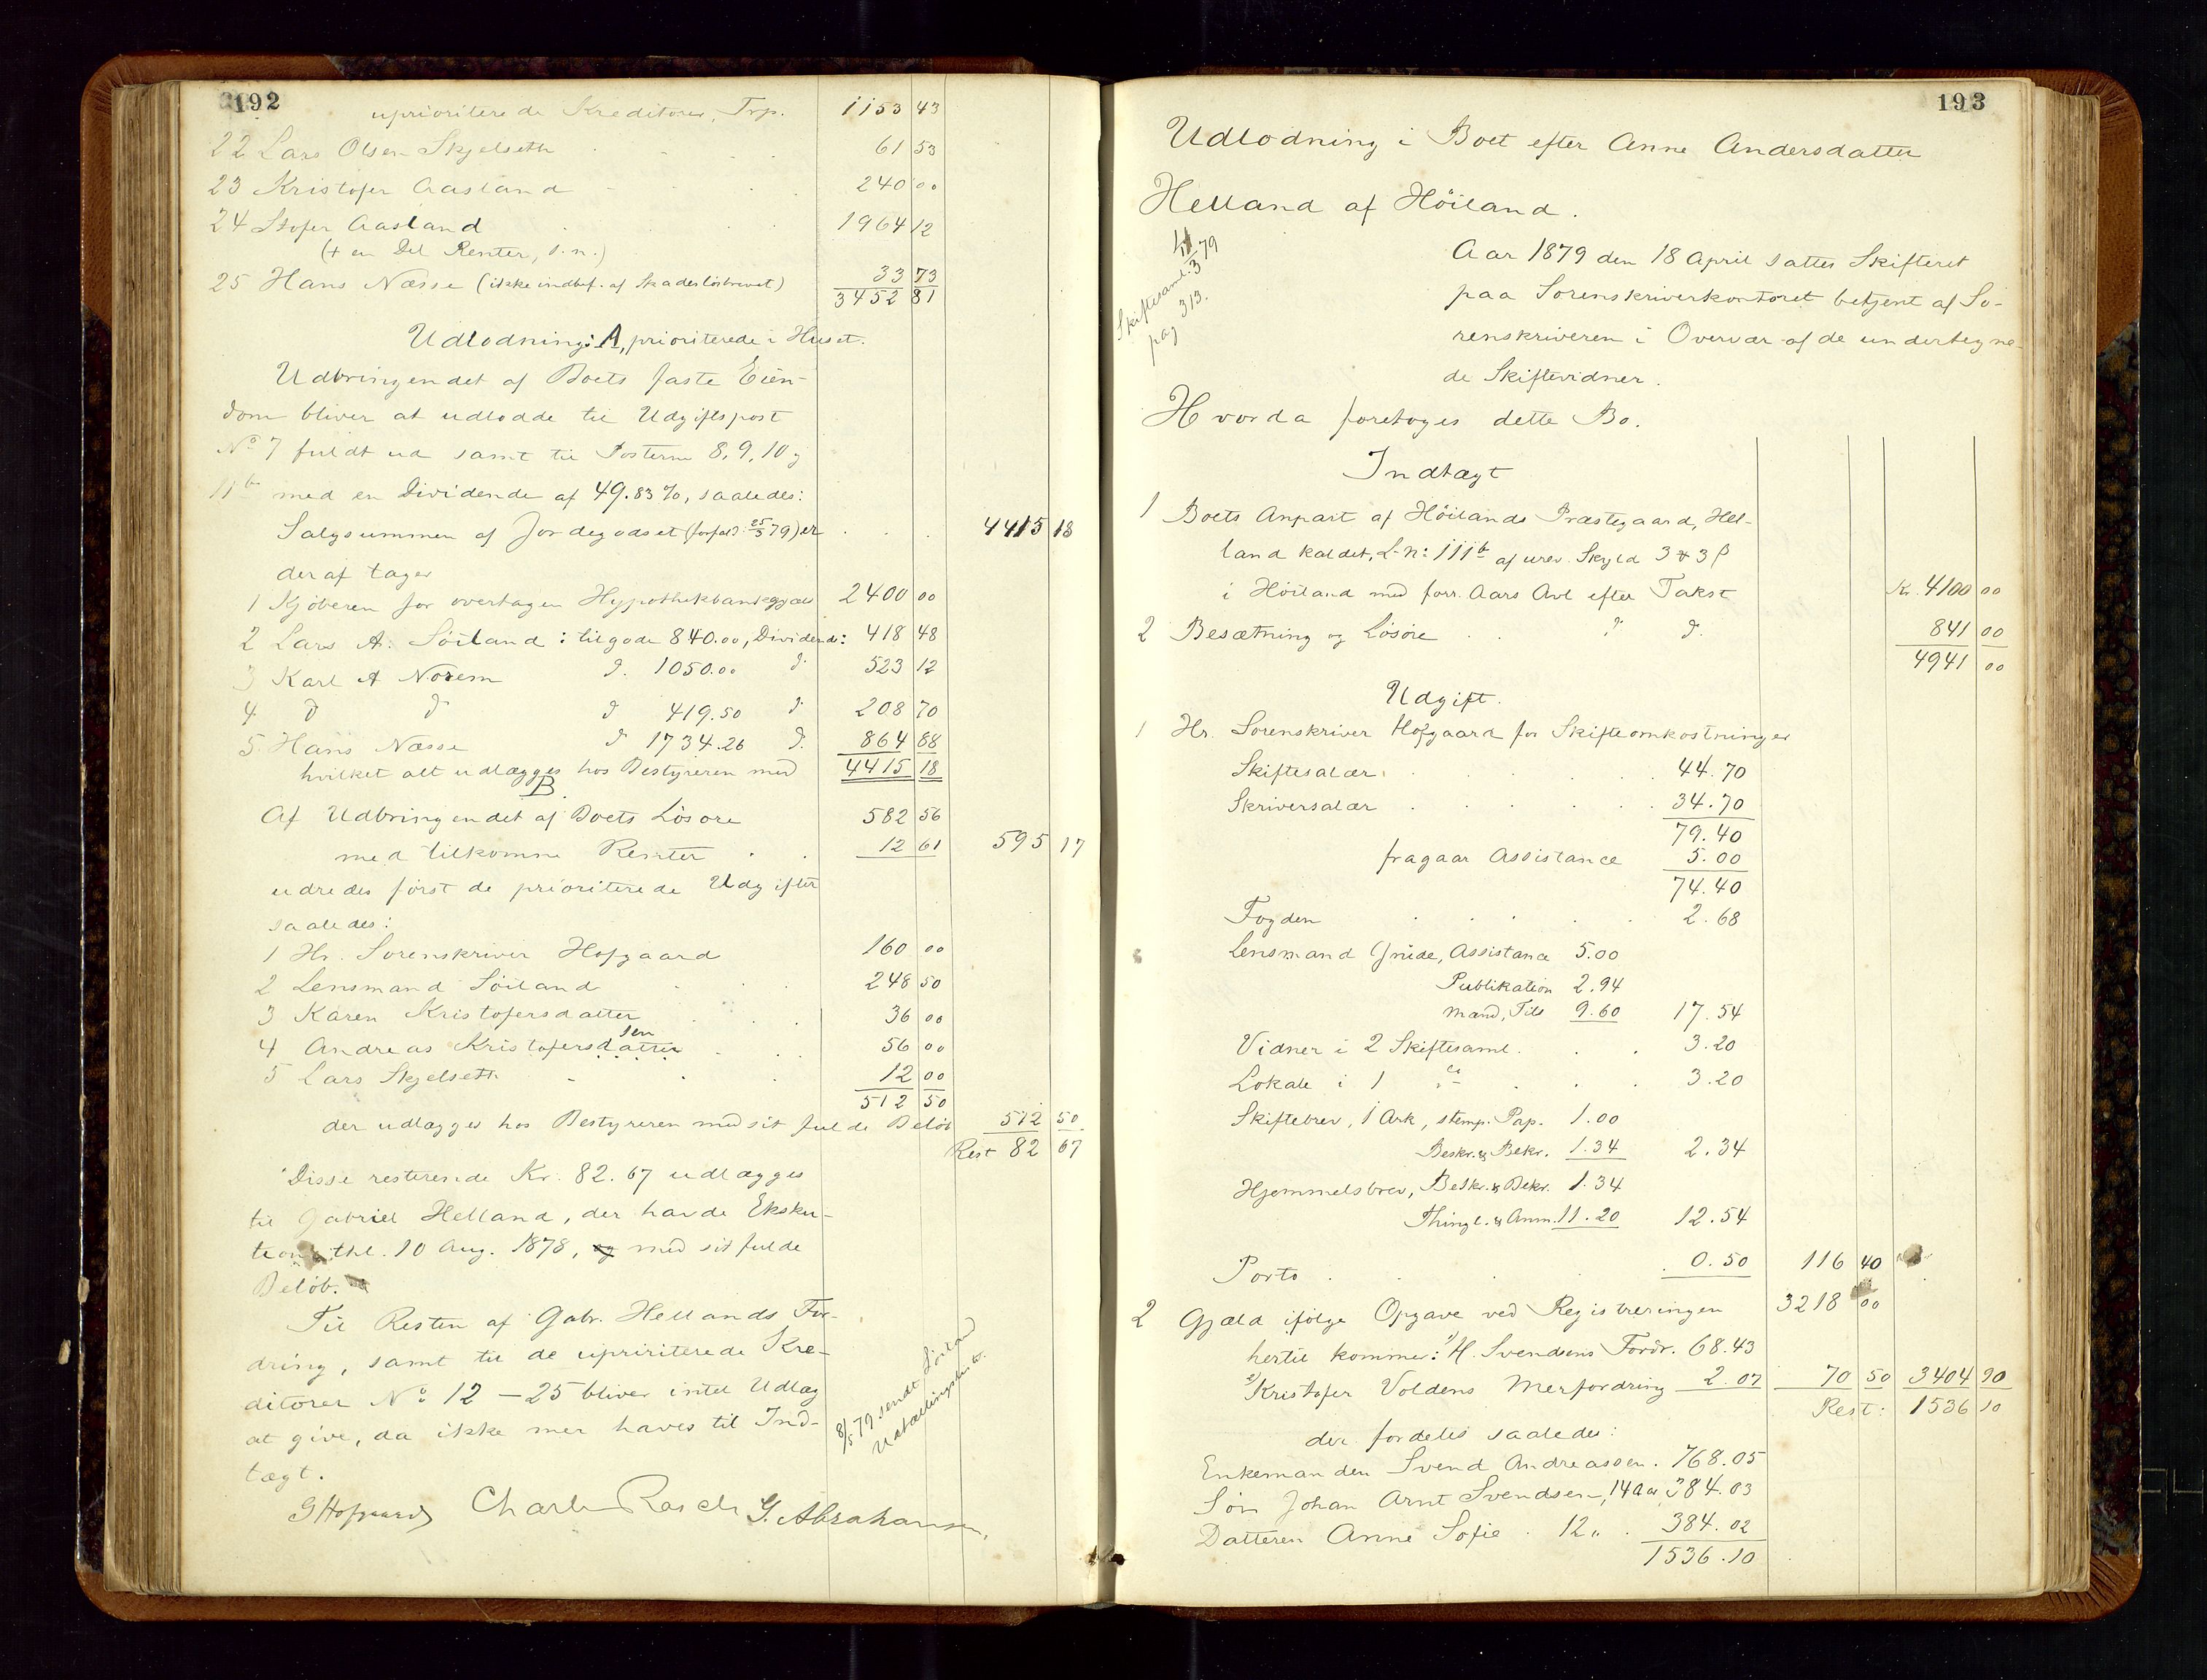 192
uprioriterede Kreditorer, Trp. 1153 43
22 Lars Olsen Skjelseth 61 53
23 Kristofer Aasland 240 00
24 Stofer Aasland 1964 12
(+ en Del Renter, s.n.)
25 Hans Næsse (ikke indbef. af Skadesløsbrevet) 33 73
3452 81
Udlodning: A, prioriterede i Huset.
Udbringendet af Boets faste Eien-
dom bliver at udlodde til Udgiftspost
No 7 fuldt ud samt til Posterne 8, 9, 10 og
11b med en Dividende af 49.83 %, saaledes:
Salgsummen af Jordegodset (forfald. 25/3 79) er 4415 18
deraf tager
1 Kjøberen for overtagen Hypothekbankgjæld 2400 00
2 Lars A. Söiland : tilgode 840.00, Dividende: 418 48
3 Karl A Norem d. 1050.00 d. 523 12
4 d d d 419.50 d 208 70
5 Hans Næsse d 1734.26 d. 864 88
hvilket alt udlægges hos Bestyreren med 4415 18
B.
Af Udbringendet af Boets Løsøre 582 56
med tilkomne Renter 12 61 595 17
udredes først de prioriterede Udgifter
saaledes:
1 Hr. Sorenskriver Hofgaard 160 00
2 Lensmand Söiland 248 50
3 Karen Kristofersdatter 36 00
4 Andreas Kristofersdatter sen 56 00
5 Lars Skjelseth 12 00
512 50
der udlægges hos Bestyreren med sit fulde Beløb 512 50
Rest 82 67
Disse resterende Kr. 82.67 udlægges
til Gabriel Helland, der havde Eksku-
tion thl. 10 Aug. 1878, og med sit fulde
Beløb.
Til Resten af Gabr. Hellands For-
dring, samt til de upririterede Kre-
ditorer No 12 – 25 bliver intet Udlæg
at give, da ikke mer haves til Ind-
tægt.
8/5 79 sendt Söiland
Udbetalingsliste.
GHofgaard Charles Rasch G. Abrahamsen.
193
Udlodning i Boet efter Anne Andersdatter
Helland af Höiland.
Skiftesaml. 3 79
pag 313.
Aar 1879 den 18 April sattes Skifteret
paa Sorenskriverkontoret betjent af So-
renskriveren i Overvær af de undertegne-
de Skiftevidner.
Hvorda foretoges dette Bo.
Indtægt
1 Boets Anpart af Höilands Præstegaard, Hel-
land kaldet, L-n: 111b af urev. Skyld 3 ₰ 3 β
i Höiland med forr. Aars Avl efter Takst Kr. 4100 00
2 Besætning og Løsøre d. 841 00
4941 00
Udgift.
1 Hr. Sorenskriver Hofgaard for Skifteomkostninger
Skiftesalær 44.70
Skriversalær 34.70
79.40
fragaar Assistance 5.00
74.40
Fogden 2.68
Lensmand Grude, Assistance 5.00
Publikation 2.94
Mand, Tils 9.60 17.54
Vidner i 2 Skiftesaml. 3.20
Lokale i 1 3.20
Skiftebrev, 1 Ark, stemp. Pap. 1.00
Beskr. & Bekr. 1.34 2.34
Hjemmelsbrev, Beskr. & Bekr. 1.34
Thingl. & Anm. 11.20 12.54
Porto 0.50 116 40
2 Gjæld ifölge Opgave ved Registreringen 3218 00
hertil kommer: 1) H. Svendsens Fordr. 68.43
2) Kristofer Voldens Merfordring 2.07 70 50 3404 90
Rest: 1536 10
der fordeles saaledes:
Enkemanden Svend Andreassen 768.05
Søn Johan Arnt Svendsen, 14 Aar 384.03
Datteren Anne Sofie 12 " 384.02
1536.10